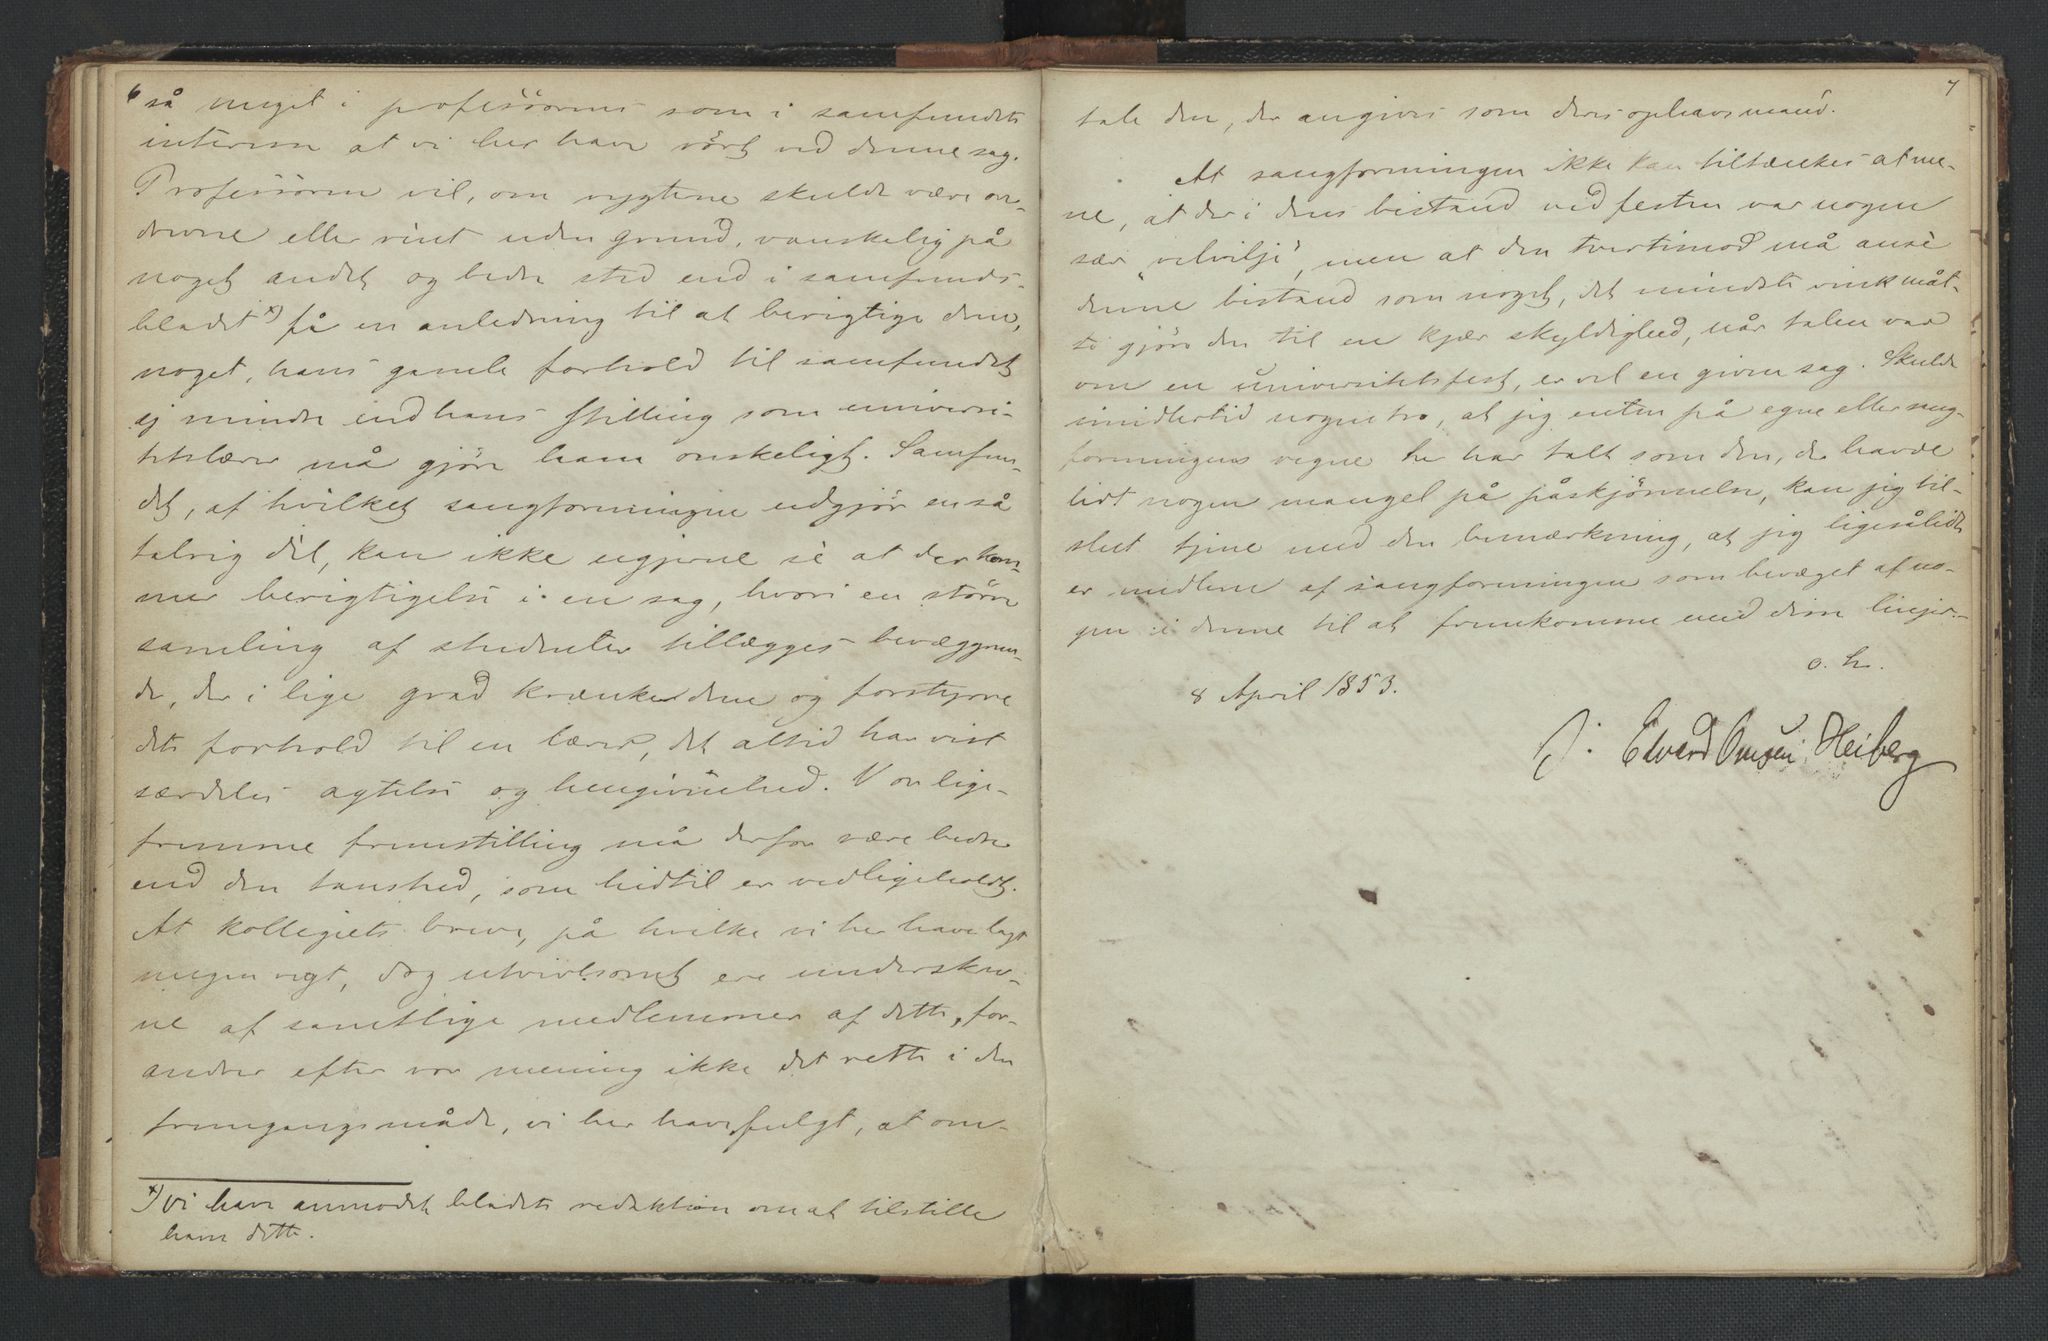 6
så meget i professorens som i samfundets
interesse at vi her have rørt ved denne sag.
Professoren vil, om rygterne skulde være on-
drevne eller rent uden grund, vanskelig på
noget andet og bedre sted end i samfunds-
bladet x) få en anledning til at berigtige dem,
noget, hans gamle forhold til samfundet
ej mindre end hans stilling som universi-
tetslærer må gjøre ham ønskeligt. Samfun-
det, af hvilket sangforeningen udgjør en så
talrig del, kan ikke ugjerne se at der kom-
mer berigtigelse i en sag, hvori en større
samling af studenter tillægges bevæggrun-
de, der i lige grad krænke dem og forstyrre
dets forhold til en lærer, det altid har vist
særdeles agtelse og hengivenhed. Vor lige-
fremme fremstilling må derfor være bedre
end den taushed, som hidtil er vedligeholdt.
At kollegiets breve, på hvilke vi her have lagt
megen vegt, dog utvivlsomt ere underskre-
ne af samtlige medlemmer af dette, for-
andrer efter vor mening ikke det rette i den
fremgangsmåde, vi her have fulgt, at om-
x) Vi have anmodet bladets redaktion om at tilstille
ham dette.
7
tale den, der angives som deres ophavsmand.
At sangforeningen ikke kan tiltænkes at me-
ne, at der i dens bistand ved festen var nogen
sær "velvilje", men at den tvertimod må anse
denne bistand som noget, det mindste vink måt-
te gjøre den til en kjær skyldighed, når talen var
om en universitetsfest, er vel en given sag. Skulde
imidlertid nogen tro, at jeg enten på egne eller sang-
foreningens vegne her har talt som den, der havde
lidt nogen mangel på påskjønnelse, kan jeg til-
slut tjene med den bemærkning, at jeg ligesålidt
er medlem af sangforeningen som bevæget af no-
gen i denne til at fremkomme med disse linjer.
o. h.
8 April 1853.
J. Edvard Omsen Heiberg